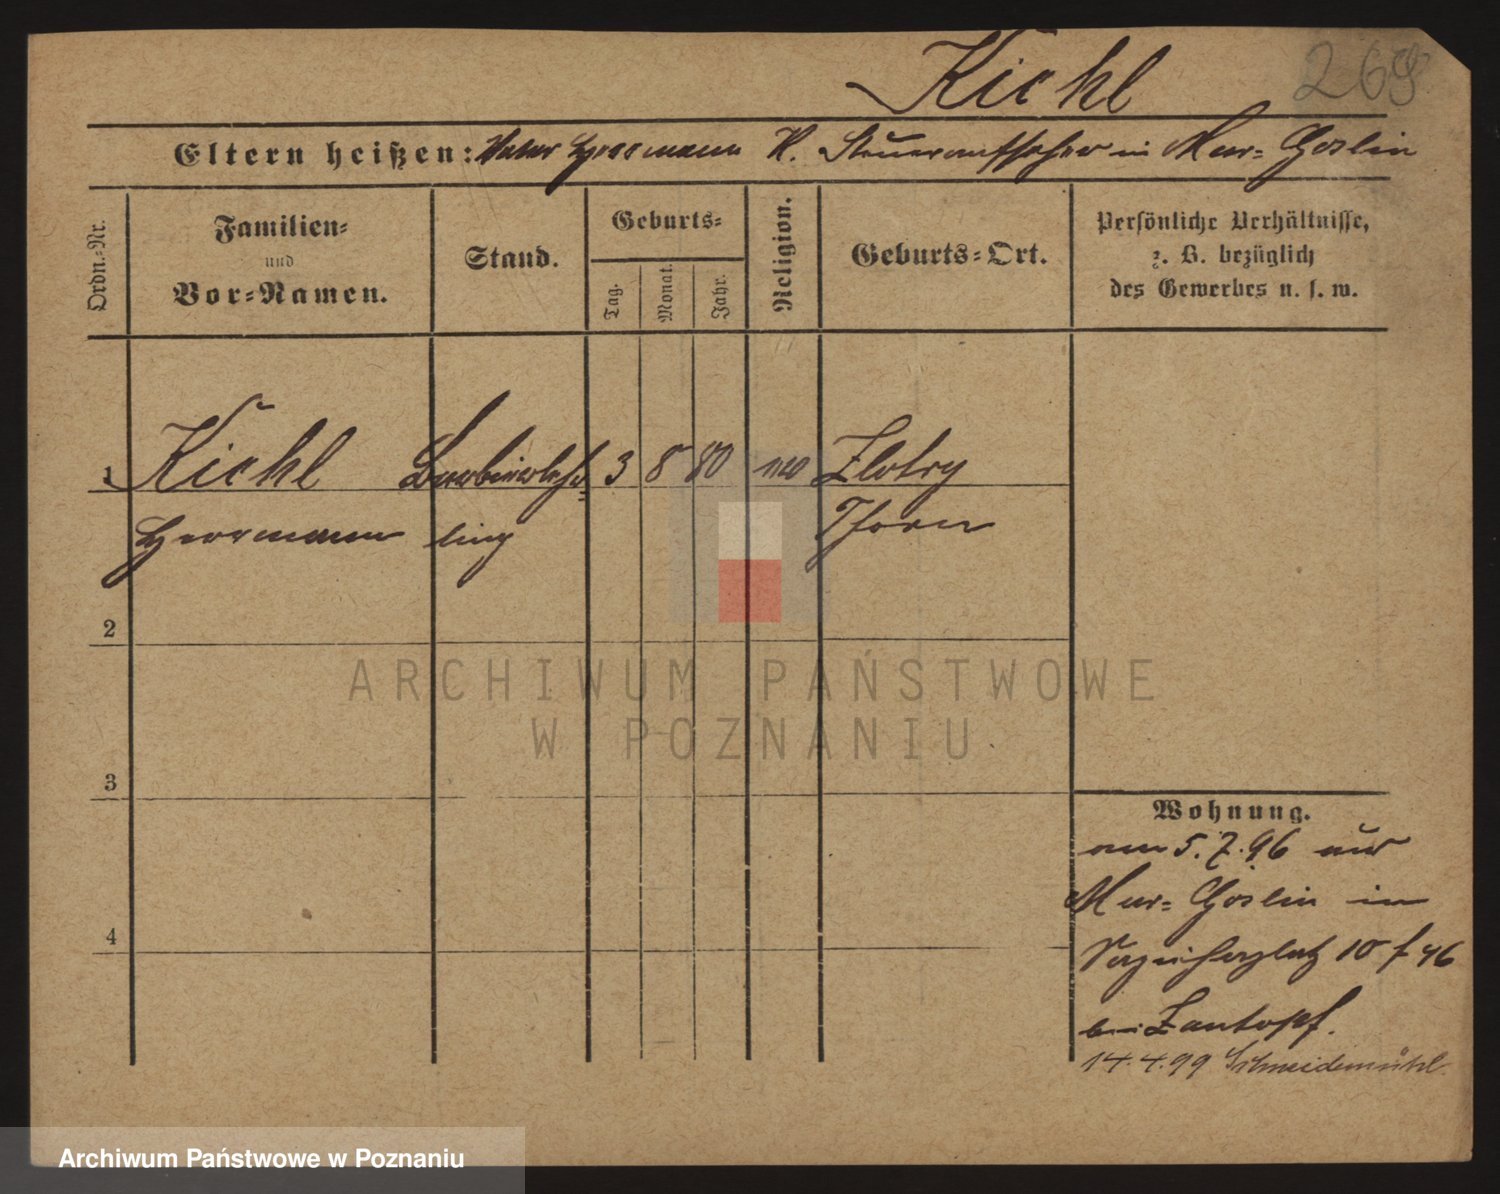 Kiehl 269
Eltern heißen: Vater Herrmann K. Steueraufseher in Mur= Goslin
Ordn.=Nr.
Familien=
und
Vor=Namen.
Stand.
Geburts=
Tag.
Monat.
Jahr.
Religion.
Geburts=Ort.
Persönliche Verhältnisse,
z. B. bezüglich
des Gewerbes u. s. w.
1 Kiehl Barbierlehr= 3 8 80 Zlotry
Herrmann ling Thorn
2
3
4
Wohnung.
am 5.7.96 aus
Mur= Goslin in
10
bei Zantopf.
14.4.99 Schneidemühl.
ARCHIWUM PAŃSTWOWE
W POZNANIU
Archiwum Państwowe w Poznaniu